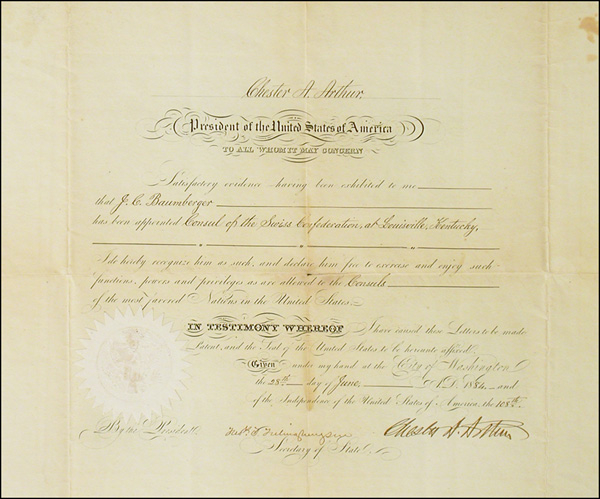 Chester A. Arthur.
President of the United States of America
TO ALL WHOM IT MAY CONCERN
Satisfactory evidence having been exhibited to me
that J. C. Baumberger
has been appointed Consul of the Swiss Confederation, at Louisville, Kentucky,
I do hereby recognize him as such, and declare him free to exercise and enjoy such
functions, powers and privileges as are allowed to the Consuls
of the most favored Nations in the United States.
IN TESTIMONY WHEREOF I have caused these Letters to be made
Patent, and the Seal of the United States to be hereunto affixed.
Given under my hand at the City of Washington
the 28th day of June, A.D. 1884, and
of the Independence of the United States of America, the 108th.
By the President:
Fredk. T. Frelinghuysen
Secretary of State.
Chester A. Arthur